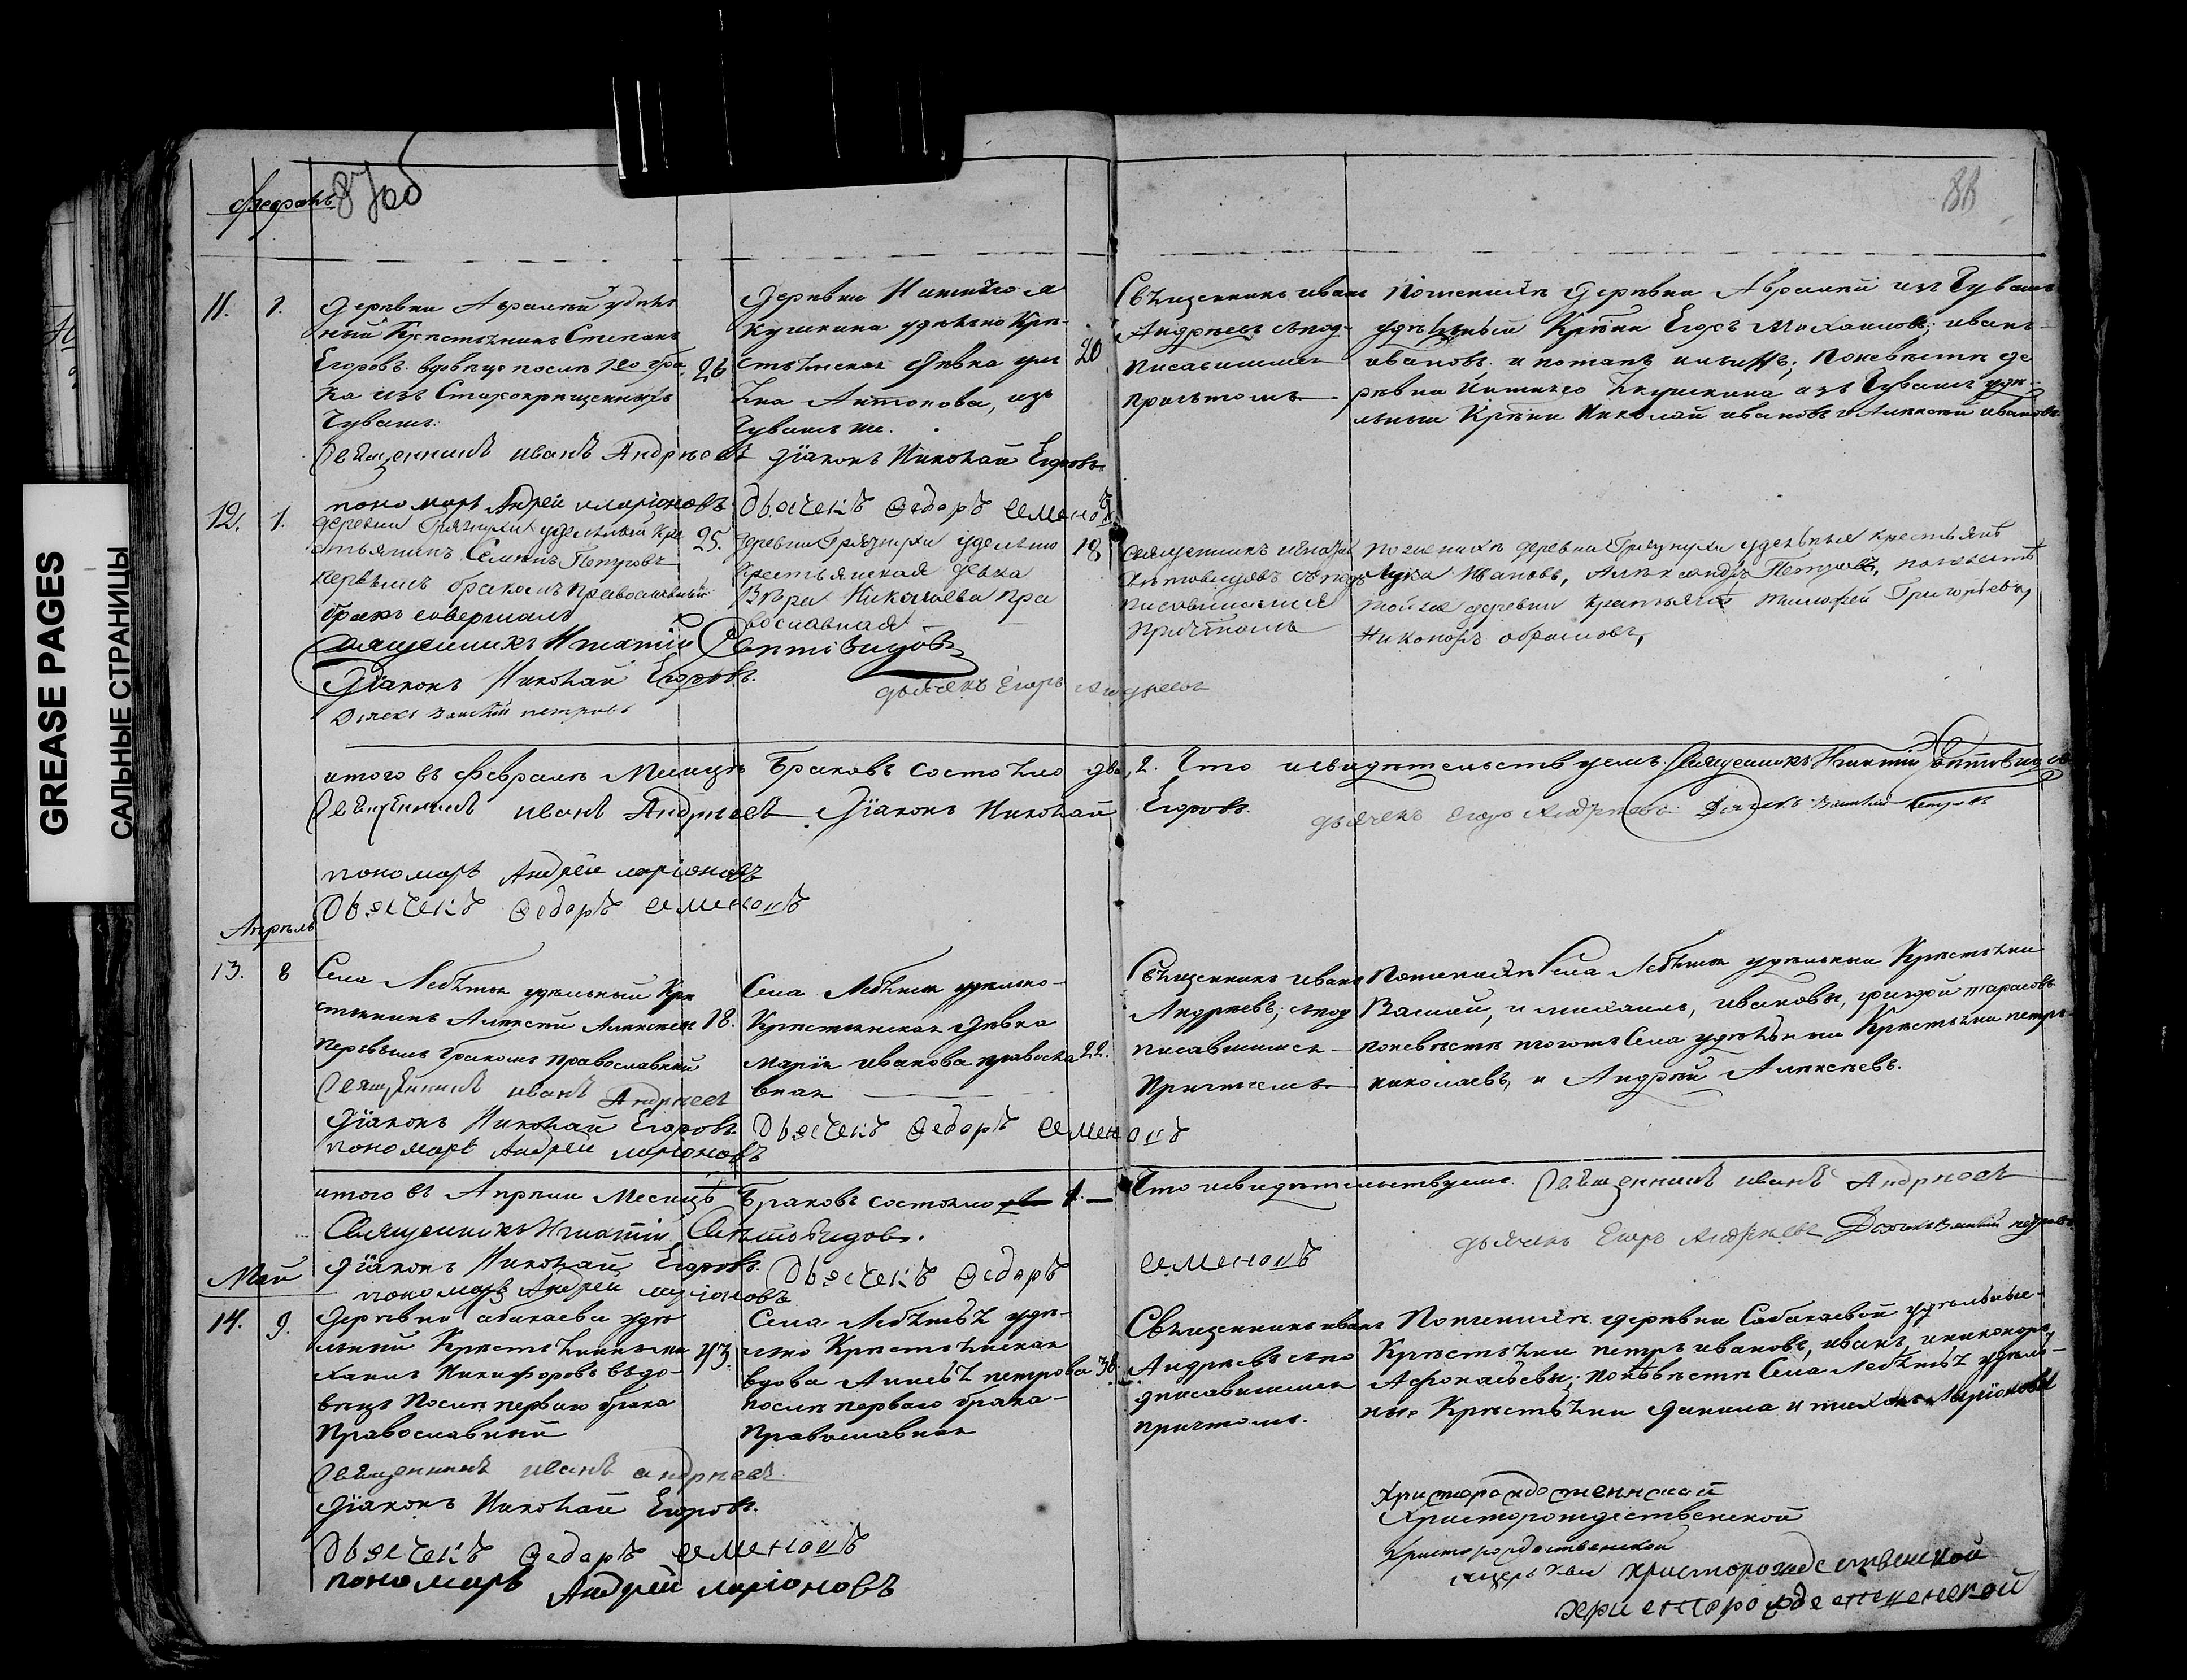 GREASE PAGES
САЛЬНЫЕ СТРАНИЦЫ
87об
88
февраль
11. 1.
Деревни Абрамкй удѣль
ный Крестьянинъ Степанъ
Егоровъ вдовецъ послѣ 1го бра
ка изъ Старокрещенныхъ
Чувашъ.
26
Деревни
кушкина удѣльно Кре-
стьянская дѣвка
Антонова, изъ
Чувашъ же.
20
Священникъ иванъ
Андреевъ сьпод-
писавшимся
причтомъ
Поженихѣ Деревни Абрамкй изъ Чувашъ
удѣльный Крѣни Егоръ Михаиловъ, иванъ
ивановъ и потапъ ильинъ; Поневѣстѣ де
ревни кушкина изъ Чувашъ удѣ-
льныи Крѣни Николай ивановъ и Алексѣй ивановъ
Священникъ иванъ Андреевъ Діаконъ Николай Егоровъ
пономарь Андрей иларіоновъ Дьячекъ Ѳедоръ семеновъ
12. 1.
деревни Грязнухи удельный кре
стьянинъ Семенъ Петровъ
первымъ бракомъ православный
бракъ совершалъ
25.
деревни Грязнухи удельно
крестьянская девка
Вѣра Николаева пра
вославная
18
священникъ игнатій
съпод
писавшимися
причтомъ
поженихѣ деревни Грязнухи удельныя крестьянѣ
Лука Ивановъ, Александръ Петровъ, поневестѣ
тойже деревни крестьянѣ Тимофей Григорьевъ,
Никоноръ абрамовъ,
Священникъ Игнатій
Діаконъ Николай Егоровъ.
дьячекъ Егоръ Андреевъ
Дьячекъ Василий петровъ
итого въ февралѣ Месицѣ Браковъ состояло два, 2. Что исвидѣтельствуемъ Священникъ Игнатій
Священникъ иванъ Андреевъ Діаконъ Николай Егоровъ. дьячекъ Егоръ Андреевъ Дьячекъ Василий петровъ
пономарь Андрей ларіоновъ
Дьячекъ Ѳедоръ семеновъ
Апрѣль
13. 8
Села Лебѣжья удѣльный Кре
стьянинъ Алексѣй Алексѣевъ
первымъ бракомъ православный
18.
Села Лебѣжья удѣльно-
Крестьянская дѣвка
Марія иванова правосла
вная
22.
Священникъ иванъ
Андреевъ, сьпод
писавшимся
Причтомъ
Поженихѣ Села Лебѣжья удѣльныи Крестьяни
Василій, и михаилъ, ивановы, тарасовъ
поневѣстѣ тогожъ Села удѣльныи Крестьяни петръ
николаевъ, и Андрей Алексѣевъ.
Священникъ иванъ Андреевъ
Діаконъ Николай Егоровъ. Дьячекъ Ѳедоръ семеновъ
пономарь Андрей ларіоновъ
итого въ Апрѣли Месицѣ Браковъ состояло 1. Что исвидѣтельствуемъ. Священникъ иванъ Андреевъ
Священникъ Игнатій
дьячекъ Егоръ Андреевъ Дьячекъ Василий петровъ
Діаконъ Николай Егоровъ. Дьячекъ Ѳедоръ семеновъ
пономарь Андрей ларіоновъ
Май
14. 9.
Деревни сабакаеви удѣ
льный Крестьянинъ ми
хаилъ Никифоровъ въдо-
вецъ Послѣ перваго брака
Православный
43.
Села Лебѣжья удѣ-
льно Крестьянская
вдова петрова
послѣ перваго брака-
Православная
38
Священникъ иванъ
Андреевъ сьпо
дписавшимся
причтомъ.
Поженихѣ деревни Сабакаевой удѣльные-
Крестьяни петръ ивановъ, иванъ, иниконоръ
Афонасьевы; поневѣстѣ Села Лебѣжья удѣль-
ные Крестьяни данила и Ларіоновы
Священникъ иванъ андреевъ
Діаконъ Николай Егоровъ.
Дьячекъ Ѳедоръ семеновъ
пономарь Андрей ларіоновъ
Христорождественской
Христорождественской
христорождественской
христорождественской
христорождественской